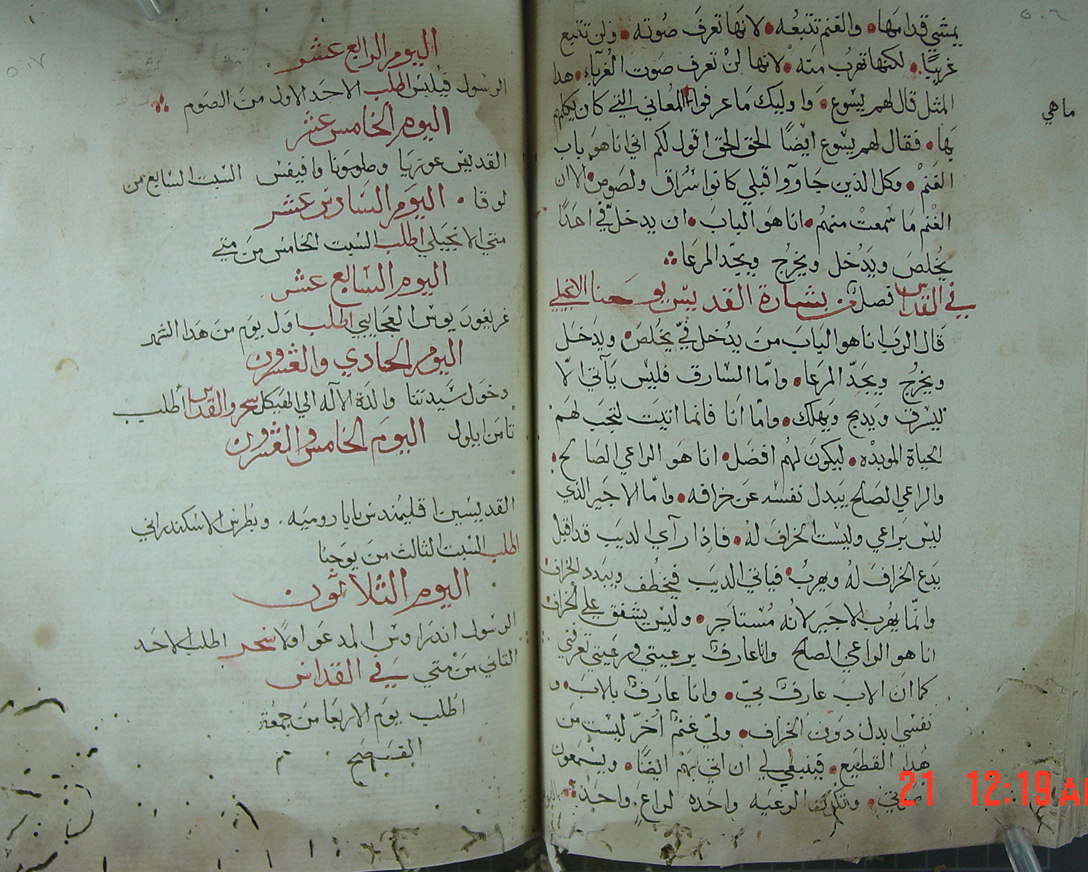 ٥٠٦
يمشي قدامها والغنم تتبعه لانها تعرف صوته ولن تتبع
غريبًا لكنها تهرب منه لانها لن تعرف صوت الغرباء هدا
المثل قال لهم يسوع واوليك ما عرفوا المعاني التي كان يكلمهم
ماهي
بها فقال لهم يسوع ايضًا الحق الحق اقول لكم اني انا هو باب
الغنم وكل الذين جاووا قبلي كانوا سراق ولصوص الا ان
الغنم ما سمعت منهم انا هو الباب ان يدخل في احدًا
يخلص ويدخل ويخرج ويجد المرعا
في القداس فصل من بشارة القديس يوحنا الانجيلي
قال الرب انا هو الباب من يدخل في يخلص ويدخل
ويخرج ويجد المرعا واما السارق فليس ياتي الا
ليسرق ويدبح ويهلك واما انا فانما اتيت لتجب لهم
الحياة الموبده ليكون لهم افضل انا هو الراعي الصالح
والراعي الصالح يبدل نفسه عن خرافه واما الاجير الذي
ليس براعي وليست الخراف له فادا راي الديب قد اقبل
يدع الخراف له ويهرب فياتي الديب فيخطف ويبدد الخراف
وانما يهرب الاجير لانه مستاجر وليس يشفق علي الخراف
انا هو الراعي الصالح وانا عارف برعيتي ورعيتي تعرفني
كما ان الاب عارف بي وانا عارف بالاب و
نفسي ابدل دون الخراف ولي غنم اخر ليست من
هدا القطيع فينبغي لي ان اتي بهم ايضًا ويسمعون
صوتي وتكون الرعيه واحده لراعٍ واحد
٥٠٧
اليوم الرابع عشر
الرسول فيلبس اطلب الاحد الاول من الصوم
اليوم الخامس عشر
القديس غوريا وصامونا وافيفس السبت السابع من
لوقا اليوم السادس عشر
متي الانجيلي اطلب السبت الخامس من متي
اليوم السابع عشر
غريغوريوس العجايبي اطلب اول يوم من هدا الشهر
اليوم الحادي والعشرون
دخول سيدتنا والدة الاله الي الهيكل سحر والقداس اطلب
تامن ايلول اليوم الخامس والعشرون
القديسين اقليمندس بابا روميه وبطرس الاسكندراني
اطلب السبت الثالث من يوحنا
اليوم الثلاثون
الرسول اندراوس المدعو اولًا سحر اطلب الاحد
الثاني من متي في القداس
اطلب يوم الاربعا من جمعة
الفصح
21 12:19 AM